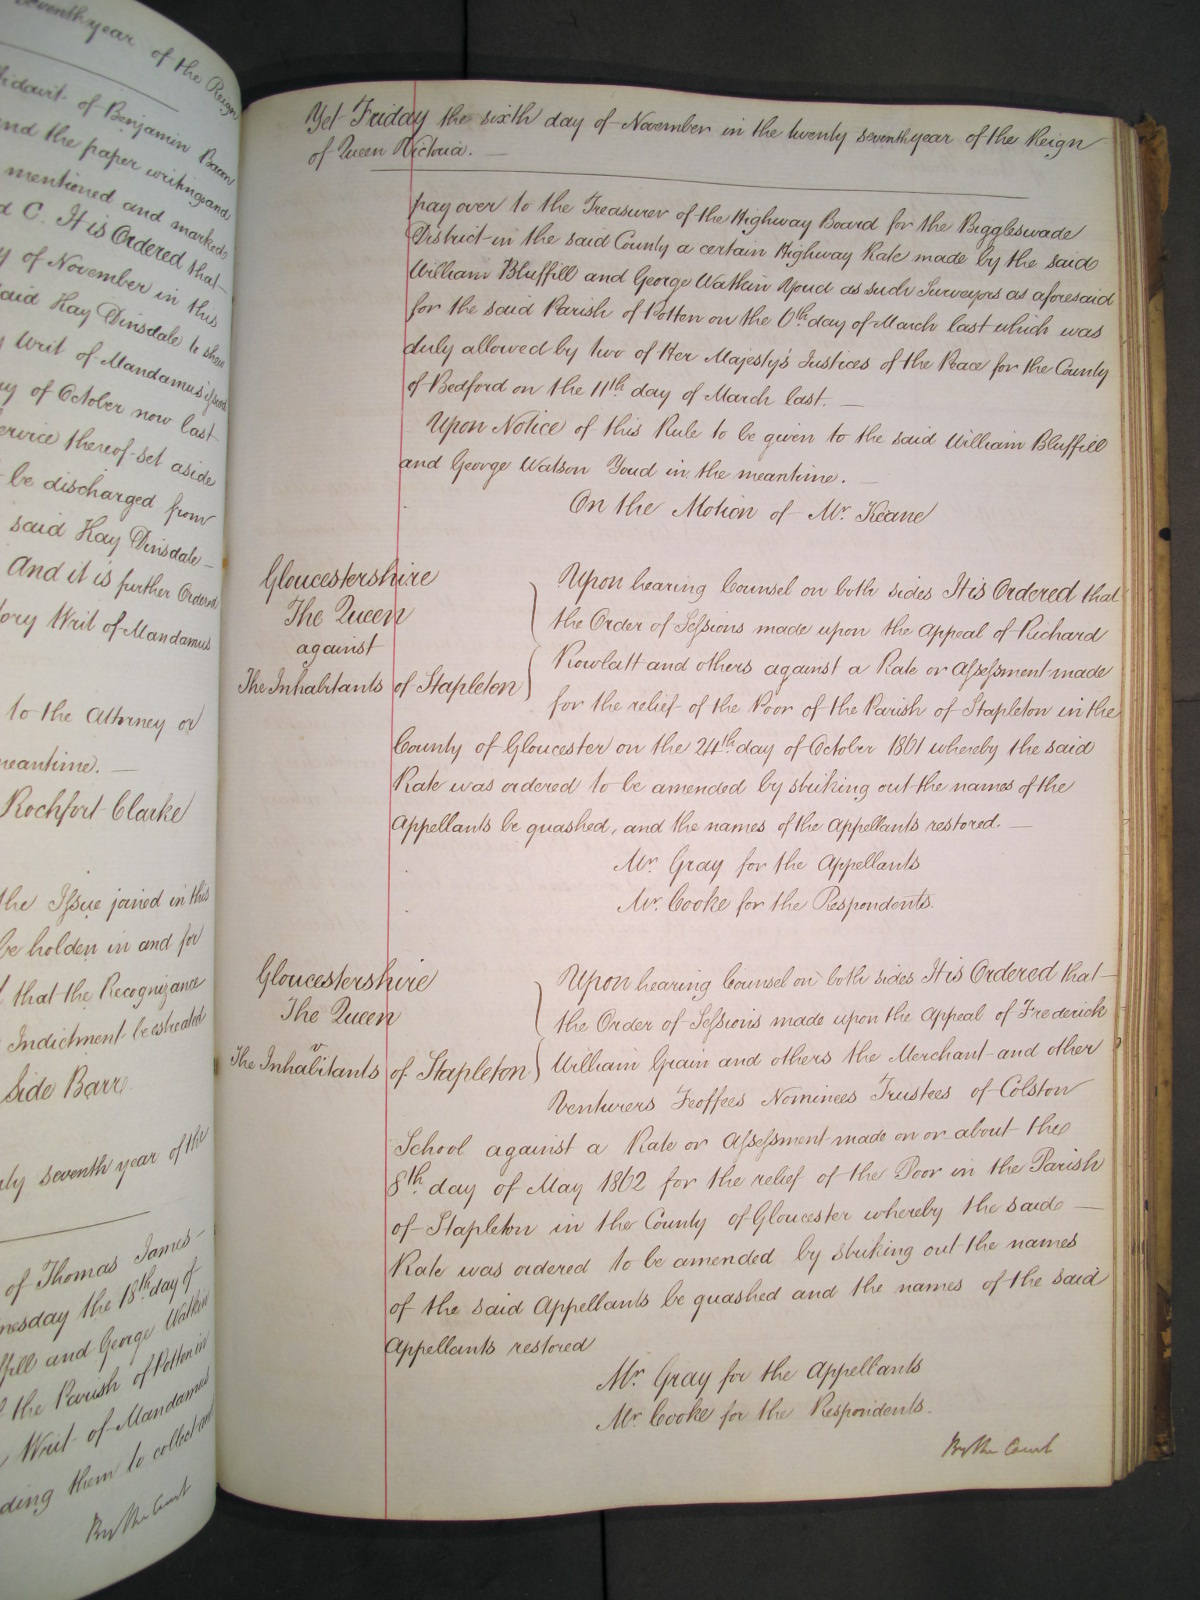 Seventh year of the Reign
Affidavit of Benjamin Bacon
and the paper writings and
mentioned and marked
d C. It is Ordered that
y of November in this
said Hay Dinsdale to shew
Writ of Mandamus issued
ay of October now last
service thereof set aside
be discharged from
said Hay Dinsdale
And it is further Ordered
tory Writ of Mandamus
to the Attorney or
meantime.
Rochfort Clarke
the Issue joined in this
be holden in and for
that the Recognizance
Indictment be estreated
Side Barr.
nty seventh year of the
of Thomas James
nesday the 18th. day of
ffill and George Watkin
the Parish of Potton in
Writ of Mandamus
ding them to collect and
By the Court
Yet Friday the sixth day of November in the twenty seventh year of the Reign
of Queen Victoria.
pay over to the Treasurer of the Highway Board for the Biggleswade
District in the said County a certain Highway Rate made by the said
William Bluffill and George Watkin Youd as such Surveyors as aforesaid
for the said Parish of Potton on the 6th. day of March last which was
duly allowed by two of Her Majesty's Justices of the Peace for the County
of Bedford on the 11th. day of March last.
Upon Notice of this Rule to be given to the said William Bluffill
and George Watson Youd in the meantime.
On the Motion of Mr. Keane
Gloucestershire
The Queen
against
The Inhabitants of Stapleton
Upon hearing Counsel on both sides It is Ordered that
the Order of Sessions made upon the Appeal of Richard
Rowlatt and others against a Rate or Assessment made
for the relief of the Poor of the Parish of Stapleton in the
County of Gloucester on the 24th. day of October 1861 whereby the said
Rate was ordered to be amended by striking out the names of the
Appellants be quashed, and the names of the Appellants restored.
Mr. Gray for the Appellants
Mr. Cooke for the Respondents.
Gloucestershire
The Queen
v
The Inhabitants of Stapleton
Upon hearing Counsel on both sides It is Ordered that
the Order of Sessions made upon the Appeal of Frederick
William Grain and others the Merchant and other
Venturers Feoffees Nominees Trustees of Colston
School against a Rate or Assessment made on or about the
8th. day of May 1862 for the relief of the Poor in the Parish
of Stapleton in the County of Gloucester whereby the said
Rate was ordered to be amended by striking out the names
of the said Appellants be quashed and the names of the said
Appellants restored
Mr. Gray for the Appellants
Mr. Cooke for the Respondents.
By the Court